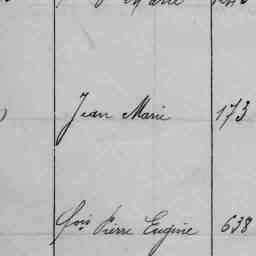 Jean Marie 173
fois Pierre Eugène 638